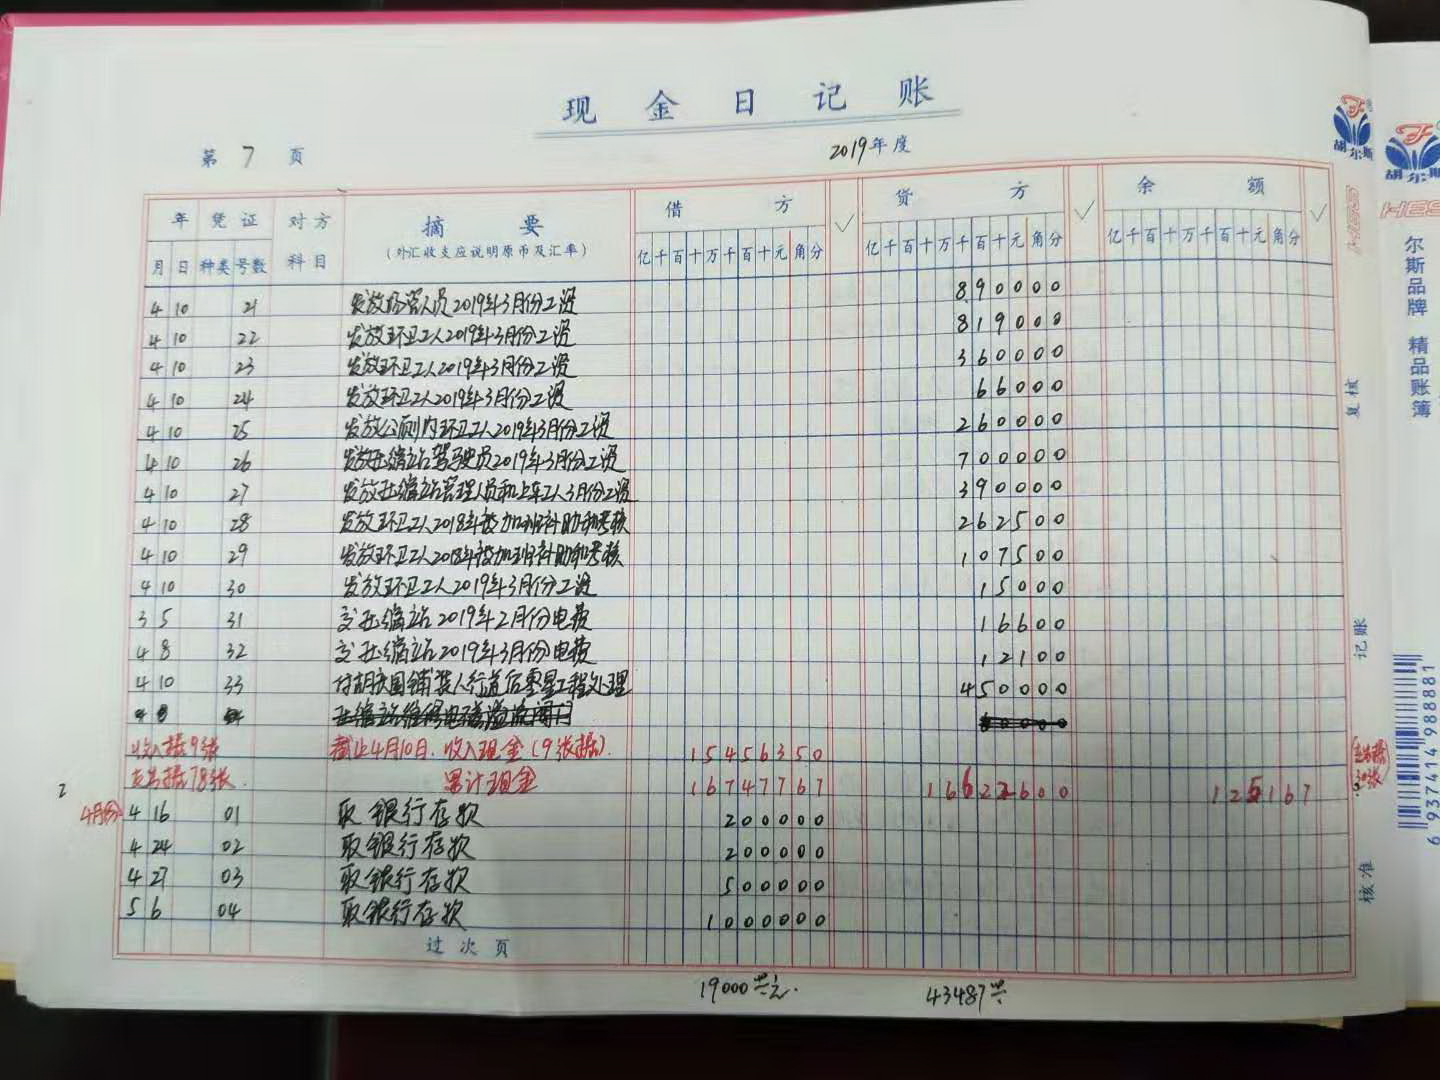 现金日记账
第 7 页
2019年度
年 凭证 对方科目 摘要 借方 ✓ 贷方 ✓ 余额 ✓
月 日 种类 号数 (外汇收支应说明原币及汇率) 亿千百十万千百十元角分 亿千百十万千百十元角分 亿千百十万千百十元角分
4 10 21 发放 人员2019年3月份工资 890000
4 10 22 发放环卫工人2019年3月份工资 819000
4 10 23 发放环卫工人2019年3月份工资 360000
4 10 24 发放环卫工人2019年3月份工资 66000
4 10 25 发放公厕内环卫工人2019年3月份工资 260000
4 10 26 发放压缩站驾驶员2019年3月份工资 700000
4 10 27 发放压缩站管理人员和上车工人3月份工资 390000
4 10 28 发放环卫工人2018年 加班补助和考核 262500
4 10 29 发放环卫工人2018年 加班补助和考核 107500
4 10 30 发放环卫工人2019年3月份工资 15000
3 5 31 交压缩站2019年2月份电费 16600
4 8 32 交压缩站2019年3月份电费 12100
4 10 33 付胡庆国铺装人行道后零星工程处理 450000
收入据9张 截止4月10日.收入现金(9张据). 15456350
支出据78张. 累计现金 16747767 16622600 125167
4月份 4 16 01 取银行存款 200000
4 24 02 取银行存款 200000
4 27 03 取银行存款 500000
5 6 04 取银行存款 1000000
过次页
19000 元.
43487
复核
记账
核准
胡尔斯
胡尔斯
HES
尔斯品牌 精品账簿
6 937414 988881